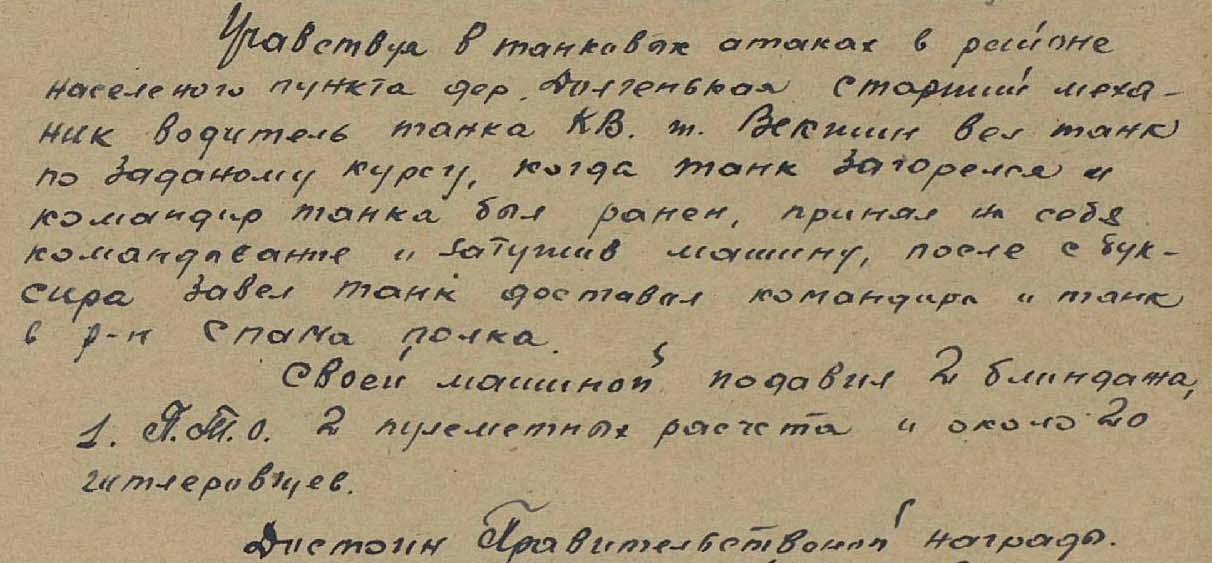 Учавствуя в танковых атаках в районе
населеного пункта дер. Долгенькая старший меха-
ник водитель танка КВ. т. Векшин вел танк
по заданому курсу, когда танк загорелся и
командир танка был ранен, принял на себя
командование и затушив машину, после с бук-
сира завел танк доставил командира и танк
в р-н спама полка.
Своей машиной подавил 2 блиндажа,
1. П.Т.О. 2 пулеметных расчета и около 20
гитлеровцев.
Достоин Правительственой награды.